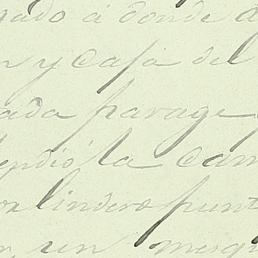 ado á donde
y casa del
ada parage
endió la cam
linderos punt
un mesq